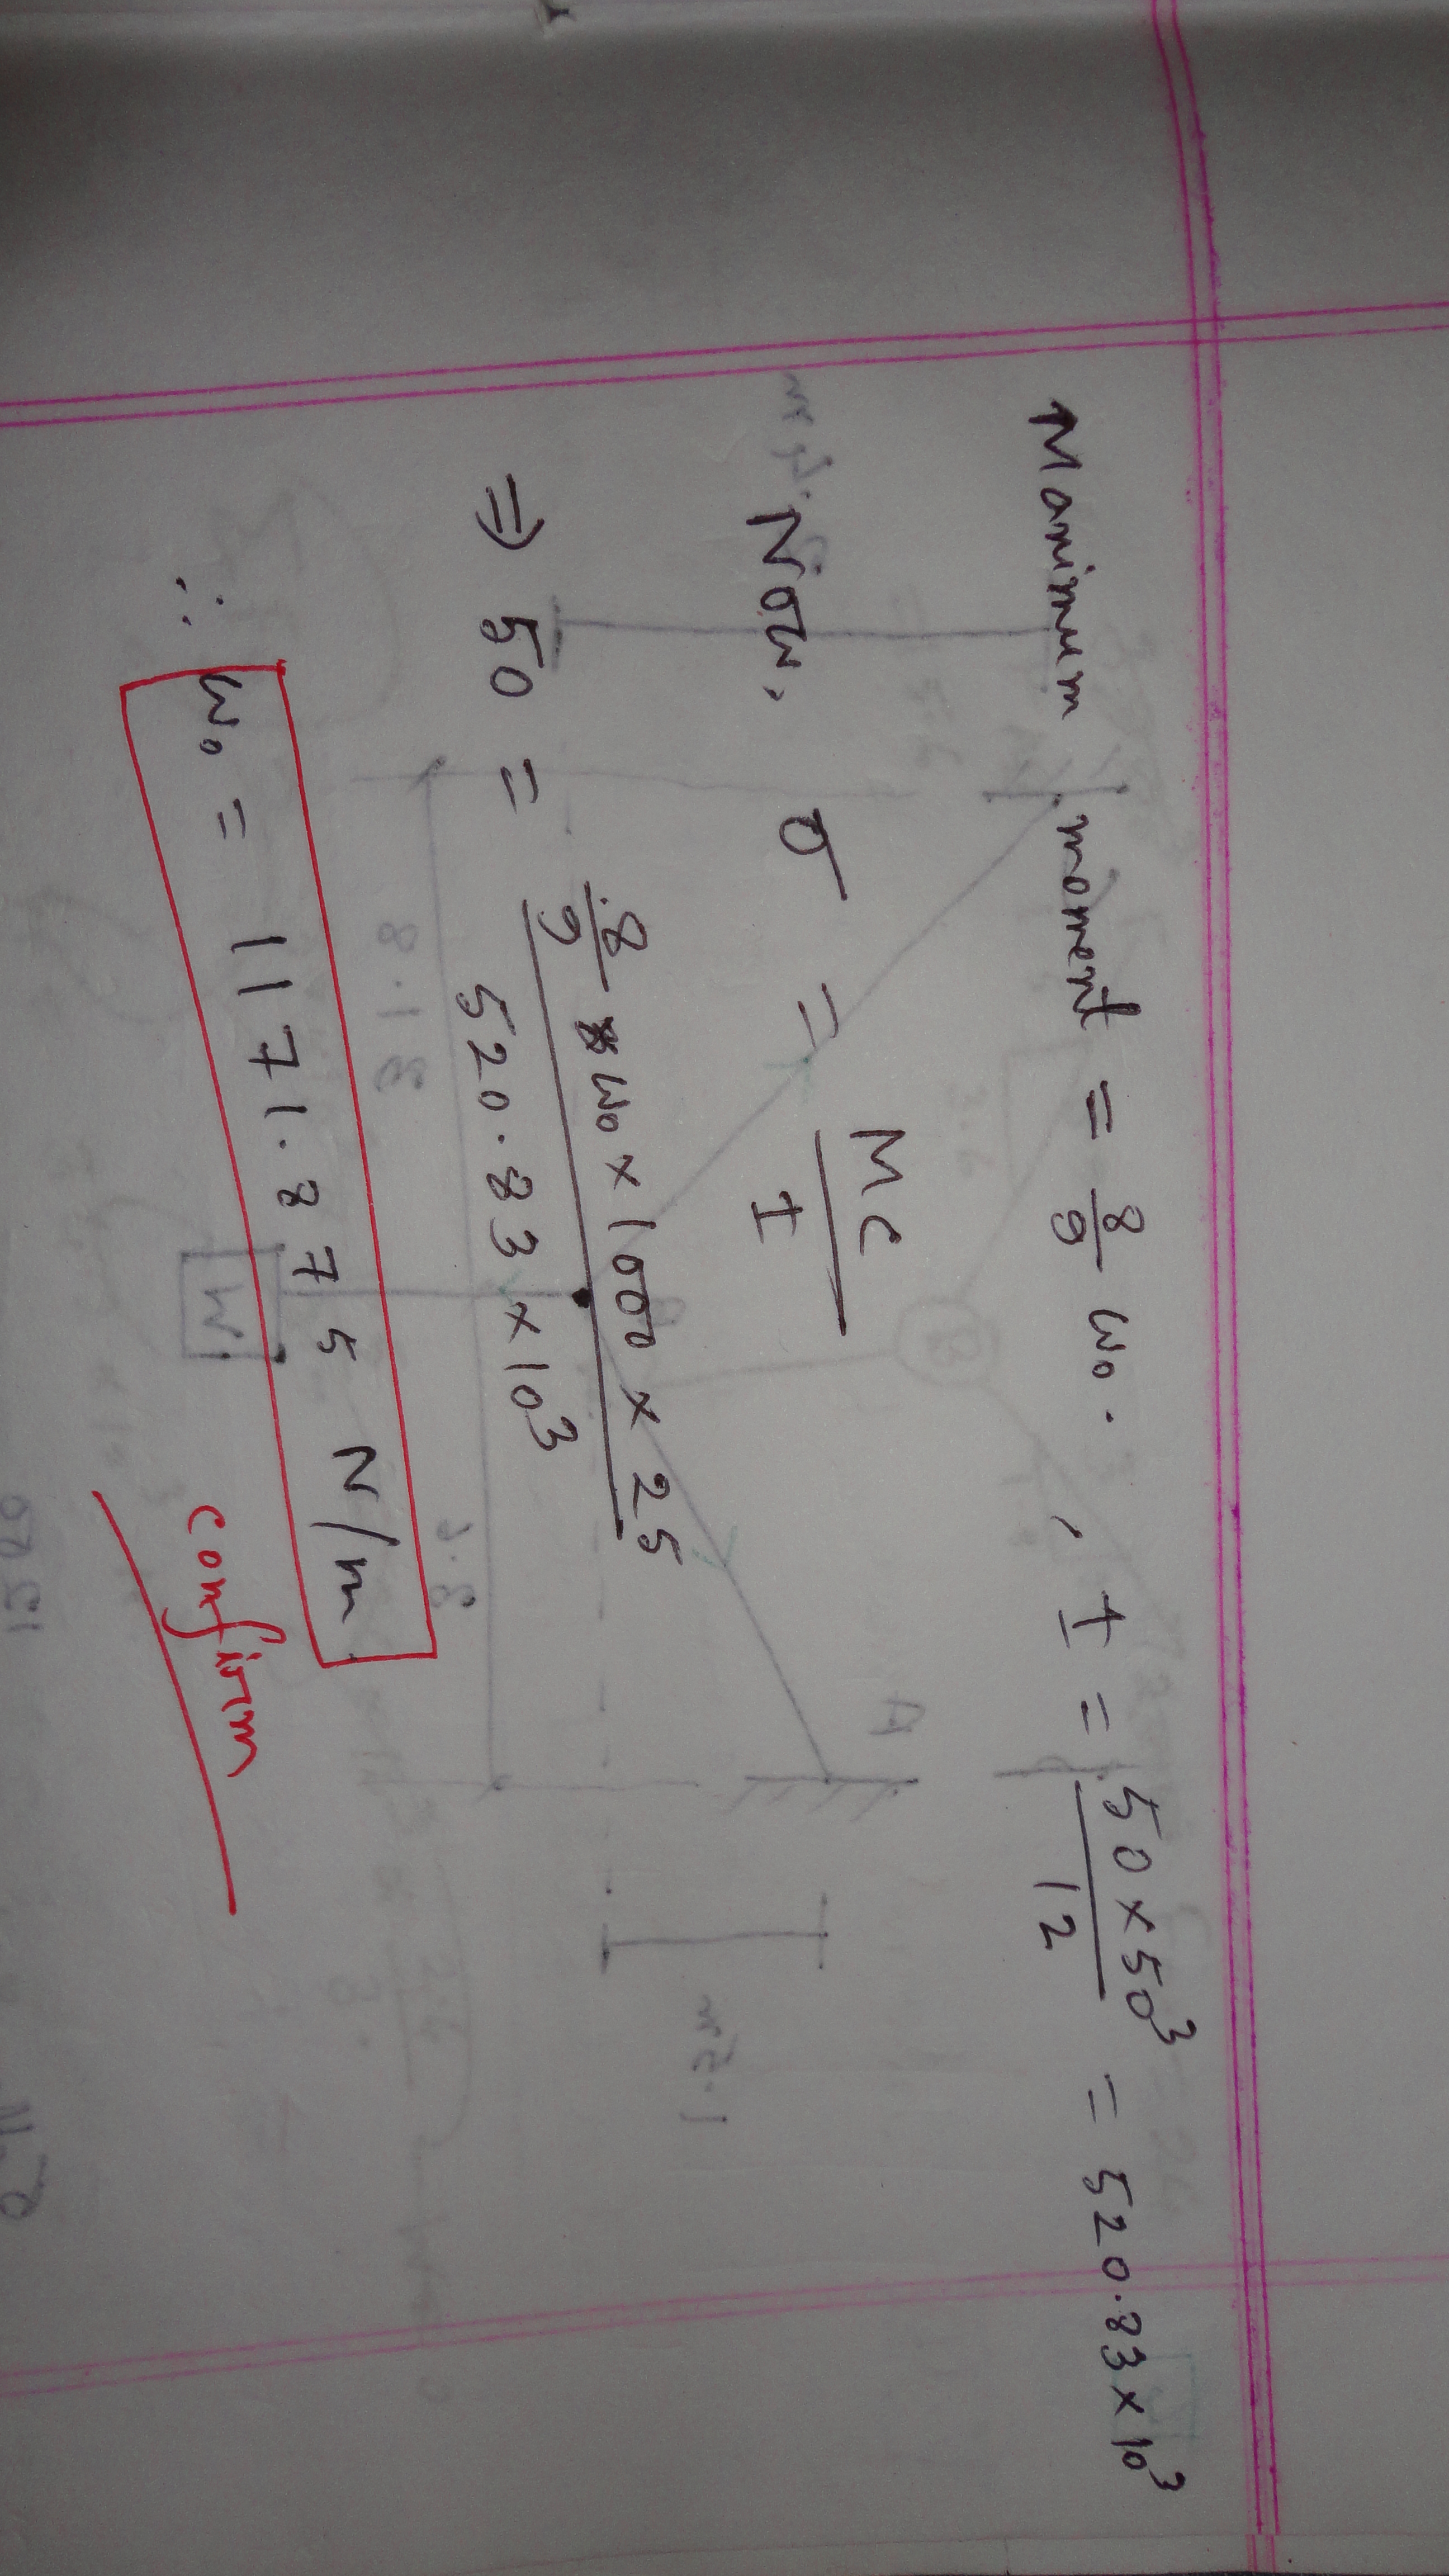 Maximum moment = 8/9 w₀. , I = 50×50³/12 = 520.83×10³
Now, σ = Mc/I
⇒ 50 = 8/9 × w₀ × 1000 × 25 / 520.83 × 10³
∴ w₀ = 1171.875 N/m
confirm